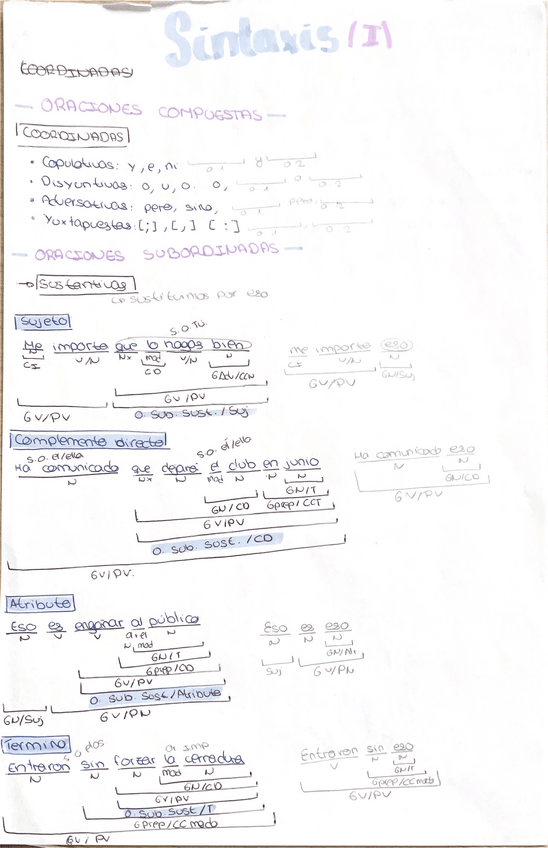 Sintaxis (I)
COORDINADAS
— ORACIONES COMPUESTAS —
COORDINADAS
• Copulativas: y, e, ni   O 1   y   O 2
• Disyuntivas: o, u, o... o,   O 1   o   O 2
• Adversativas: pero, sino,   O 1   pero   O 2
• Yuxtapuestas: [;] , [,] [:]   O 1 , O 2
— ORACIONES SUBORDINADAS —
→ Sustantivas
↳ sustituimos por eso
Sujeto
S.O. Tú.
Me importa que lo hagas bien   me importa eso
N V/N Nx mod V/N N   CI V/N N
CI CD GAdv/CCM   GV/PV GN/Suj
GV/PV
O. Sub. Sust. / Suj
GV/PV
Complemento directo
S.O. él/ella   S.O. él/ella
Ha comunicado que dejará el club en junio   Ha comunicado eso
N Nx N mod N N N   N N
GN/T   GN/CD
GN/CD GPrep/CCT   GV/PV
GV/PV
O. Sub. Sust. / CD
GV/PV.
Atributo
Eso es engañar al público   Eso es eso
N V V a+el N   N N N
N mod   GN/Atr
GN/T   Suj GV/PN
GPrep/CD
GV/PV
O. Sub Sust/Atributo
GN/Suj GV/PN
Termino
S.O. ellos   Or imp
Entraron sin forzar la cerradura   Entraron sin eso
N N N mod N   V N N
GN/CD   GN/T
GV/PV   GPrep/CC modo
O. Sub Sust / T   GV/PV
GPrep/CC modo
GV/PV